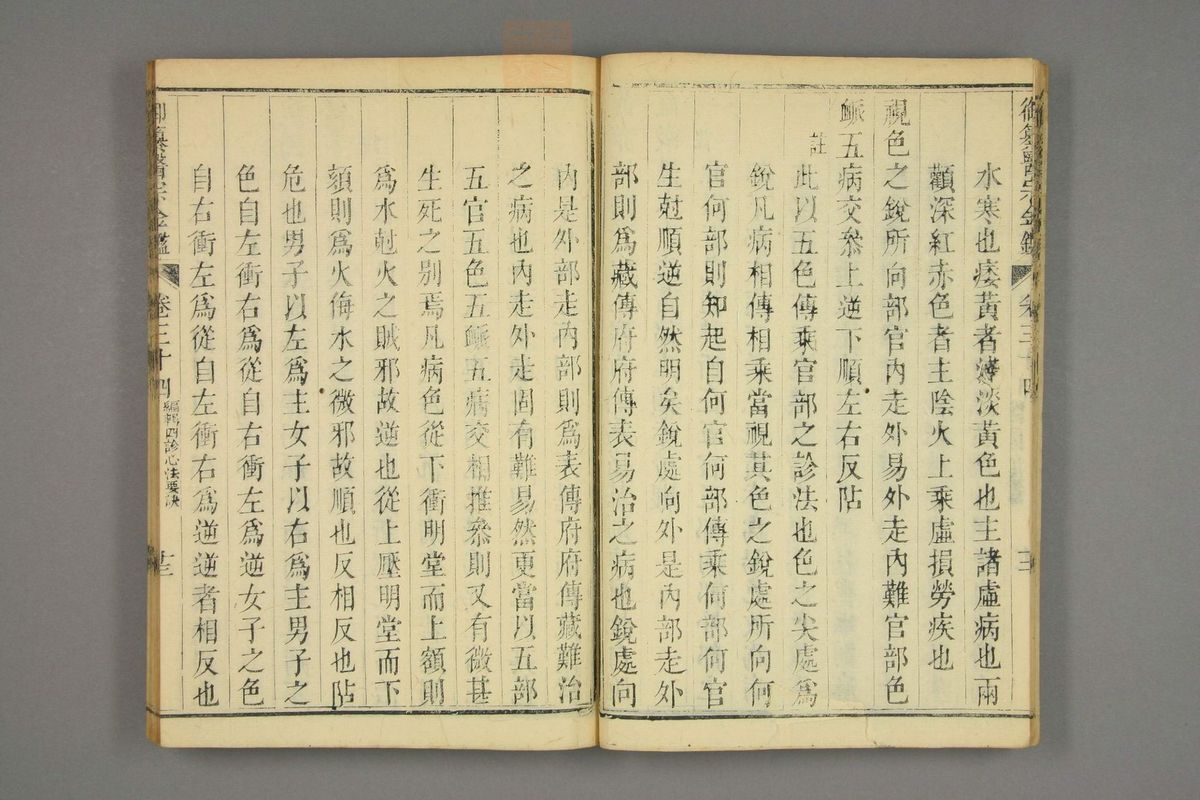 御纂醫宗金鑑 卷三十四
水寒也痿黃者薄淡黃色也主諸虛病也兩
顴深紅赤色者主陰火上乘虛損勞疾也
視色之銳所向部官內走外易外走內難官部色
䘑五病交參上逆下順左右反阽
註
此以五色傳乘官部之診法也色之尖處爲
銳凡病相傳相乘當視其色之銳處所向何
官何部則知起自何官何部傳乘何部何官
生尅順逆自然明矣銳處向外是內部走外
部則爲藏傳府府傳表易治之病也銳處向
內是外部走內部則爲表傳府府傳藏難治
之病也內走外走固有難易然更當以五部
五官五色五䘑五病交相推參則又有微甚
生死之別焉凡病色從下衝明堂而上額則
爲水尅火之賊邪故逆也從上壓明堂而下
頦則爲火侮水之微邪故順也反相反也阽
危也男子以左爲主女子以右爲主男子之
色自左衝右爲從自右衝左爲逆女子之色
自右衝左爲從自左衝右爲逆逆者相反也
御纂醫宗金鑑 卷三十四 編輯四診心法要訣